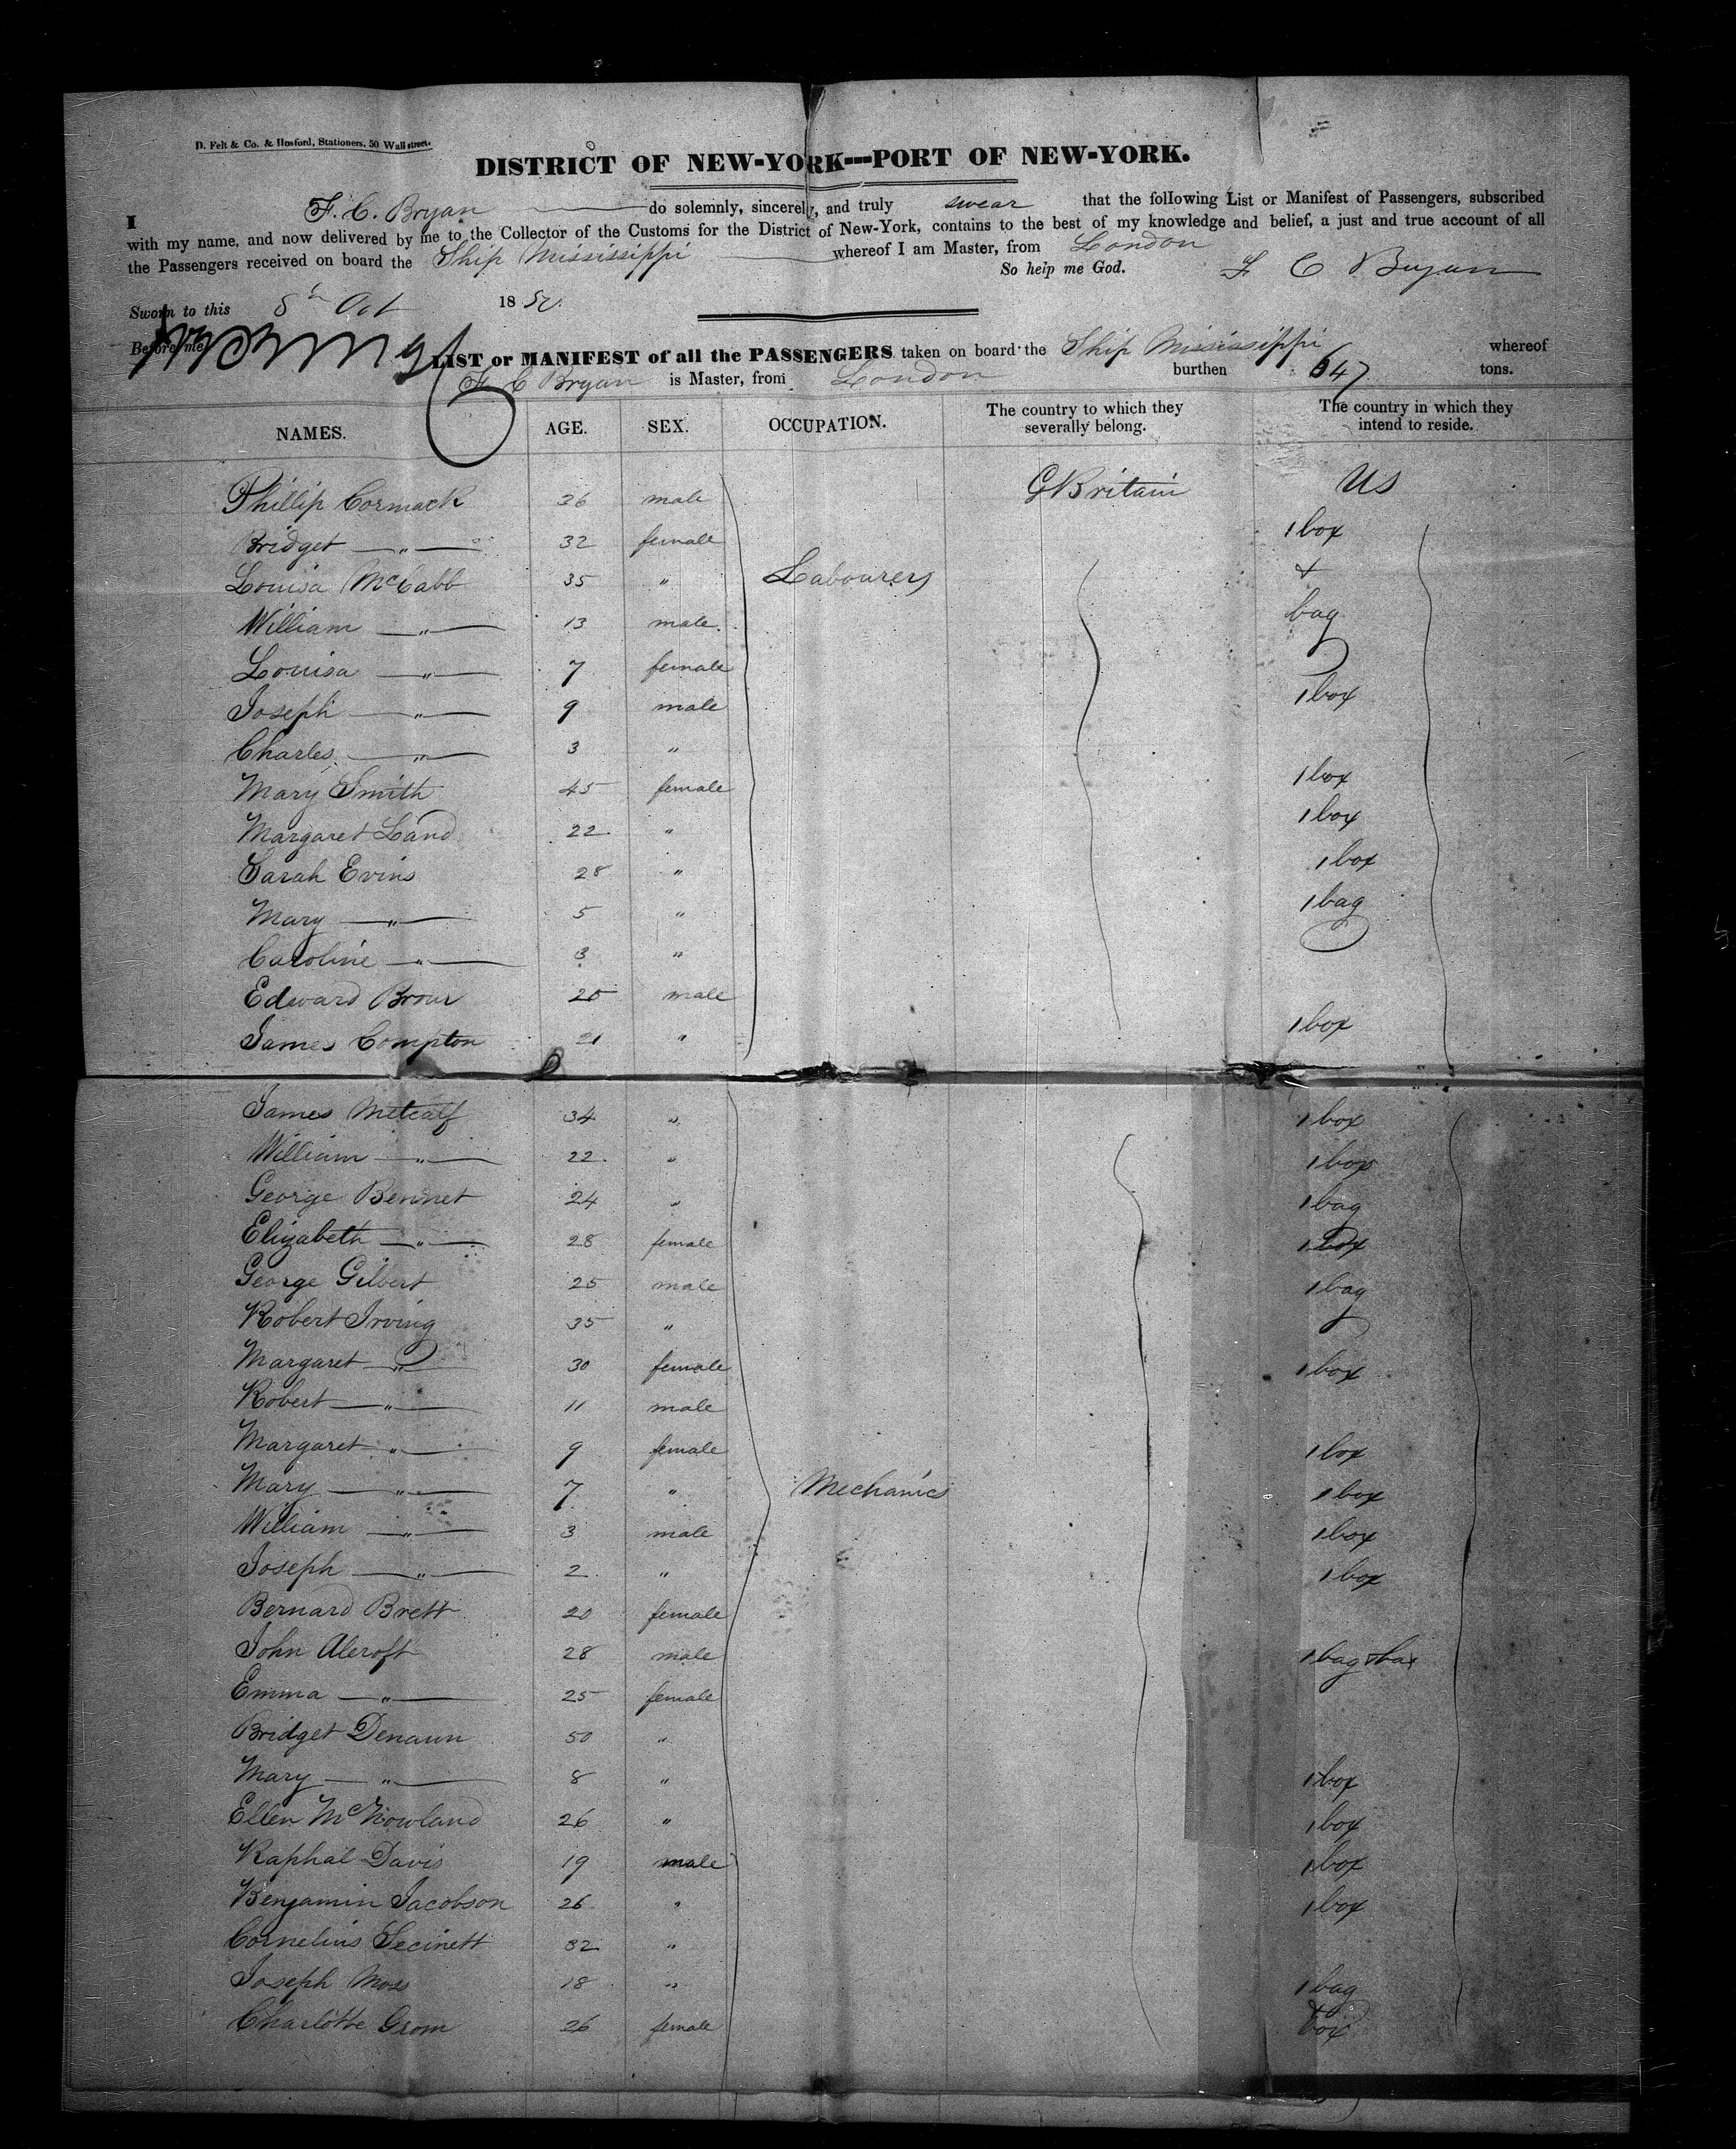 D. Felt & Co. & Hosford, Stationers, 50 Wall street.
DISTRICT OF NEW-YORK---PORT OF NEW-YORK.
I F. C. Bryan do solemnly, sincerely, and truly swear that the following List or Manifest of Passengers, subscribed
with my name, and now delivered by me to the Collector of the Customs for the District of New-York, contains to the best of my knowledge and belief, a just and true account of all
the Passengers received on board the Ship Mississippi whereof I am Master, from London
So help me God. F C Bryan
Sworn to this 8th Oct 1850.
Before me
LIST or MANIFEST of all the PASSENGERS taken on board the Ship Mississippi whereof
F C Bryan is Master, from London burthen 647 tons.
NAMES. AGE. SEX. OCCUPATION. The country to which they severally belong. The country in which they intend to reside.
Phillip Cormack 36 male G Britain US
Bridget —"— 32 female 1 box
Louisa McCabb 35 " Labourers +
William —"— 13 male bag
Louisa —"— 7 female
Joseph —"— 9 male 1 box
Charles —"— 3 "
Mary Smith 45 female 1 box
Margaret Land 22 " 1 box
Sarah Evins 28 " 1 box
Mary —"— 5 " 1 bag
Caroline —"— 3 "
Edward Brour 25 male
James Compton 21 " 1 box
James Metcalf 34 " 1 box
William —"— 22 " 1 box
George Bennet 24 " 1 bag
Elizabeth —"— 28 female 1 box
George Gilbert 25 male 1 bag
Robert Irving 35 "
Margaret —"— 30 female 1 box
Robert —"— 11 male
Margaret —"— 9 female 1 box
Mary —"— 7 " Mechanics 1 box
William —"— 3 male 1 box
Joseph —"— 2 " 1 box
Bernard Brett 20 female
John Alcroft 28 male 1 bag & box
Emma —"— 25 female
Bridget Denaun 50 "
Mary —"— 8 " 1 box
Ellen McNowland 26 " 1 box
Raphal Davis 19 male 1 box
Benjamin Jacobson 26 " 1 box
Cornelius 32 "
Joseph Moss 18 " 1 bag
Charlotte Grom 26 female box